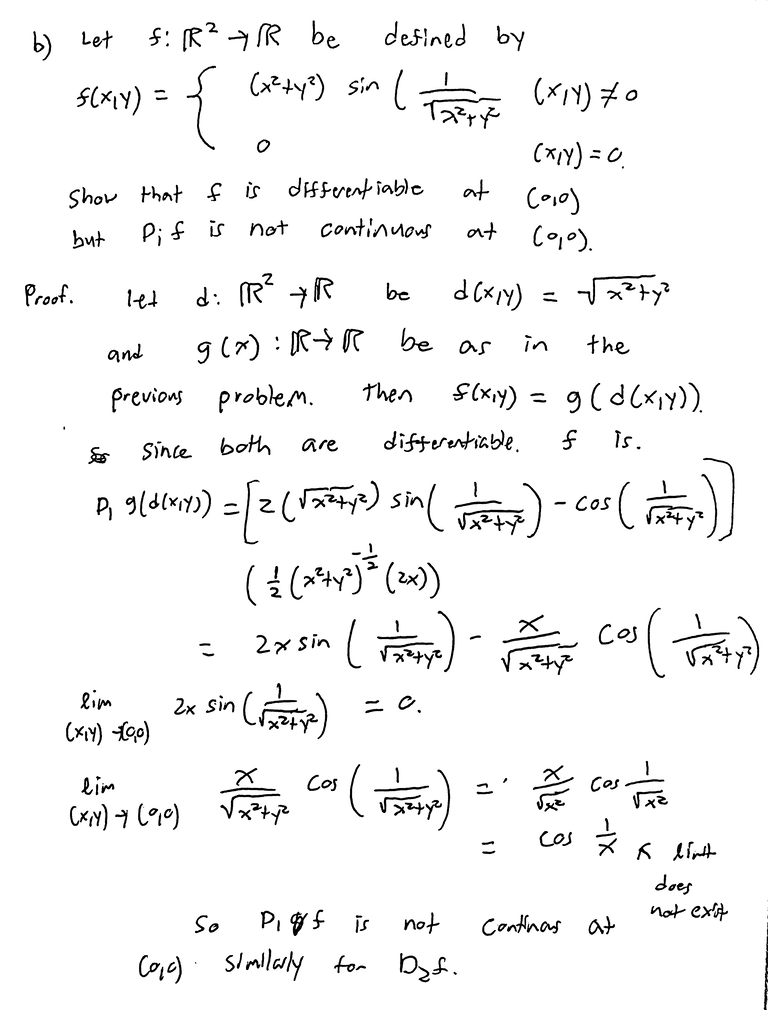 b) Let f: ℝ² → ℝ be defined by
f(x,y) = { (x²+y²) sin ( 1/√(x²+y²) (x,y) ≠ 0
0 (x,y) = 0.
Show that f is differentiable at (0,0)
but D_i f is not continuous at (0,0).
Proof. let d: ℝ² → ℝ be d(x,y) = √(x²+y²)
and g(x) : ℝ → ℝ be as in the
previous problem. Then f(x,y) = g(d(x,y)).
since both are differentiable. f is.
D₁ g(d(x,y)) = [2(√(x²+y²)) sin(1/√(x²+y²)) - cos(1/√(x²+y²))]
(½(x²+y²)^(-1/2) (2x))
= 2x sin (1/√(x²+y²)) - x/√(x²+y²) cos(1/√(x²+y²))
lim (x,y)→(0,0) 2x sin(1/√(x²+y²)) = 0.
lim (x,y)→(0,0) x/√(x²+y²) cos(1/√(x²+y²)) = x/√x² cos 1/√x²
= cos 1/x ↖ limit
does
not exist
So D₁ f is not continas at
(0,0). similarly for D₂f.